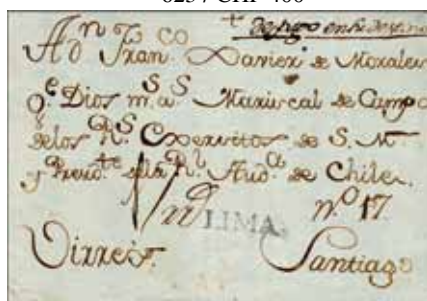 0237 CHF 400
A Dn Franco Xavier de Morales
qe Dios ms as Mariscal de Campo
de los Rs Exercitos de S. M.
y Presidte de la Rl Auda de Chile.
LIMA no 17
Virrei Santiago